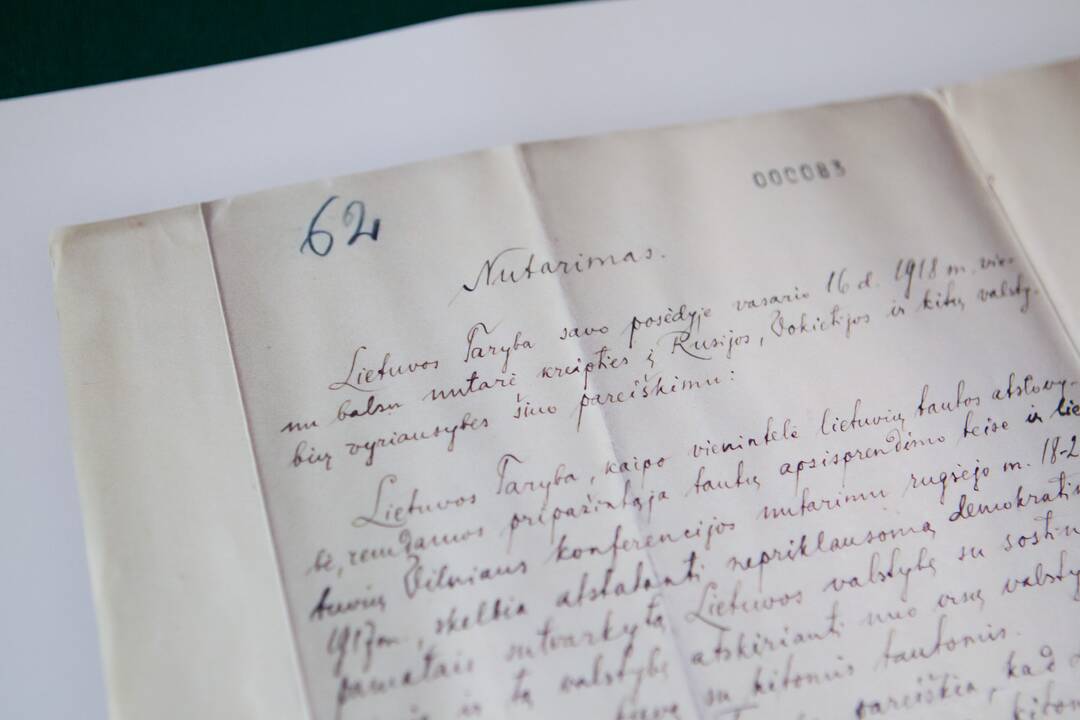 62
000083
Nutarimas.
Lietuvos Taryba savo posėdyje vasario 16 d. 1918 m. vie-
nu balsu nutarė kreipties į Rusijos, Vokietijos ir kitų valsty-
bių vyriausybes šiuo pareiškimu:
Lietuvos Taryba, kaipo vienintelė lietuvių tautos atstovy-
bė, remdamos pripažintąja tautų apsisprendimo teise ir lie
tuvių Vilniaus konferencijos nutarimu rugsėjo m. 18-2
1917 m., skelbia atstatanti nepriklausomą demokrati
pamatais sutvarkytą Lietuvos valstybę su sostin
ir tą valstybę atskirianti nuo visų valsty
buvę su kitomis tautomis.
pareiškia, kad